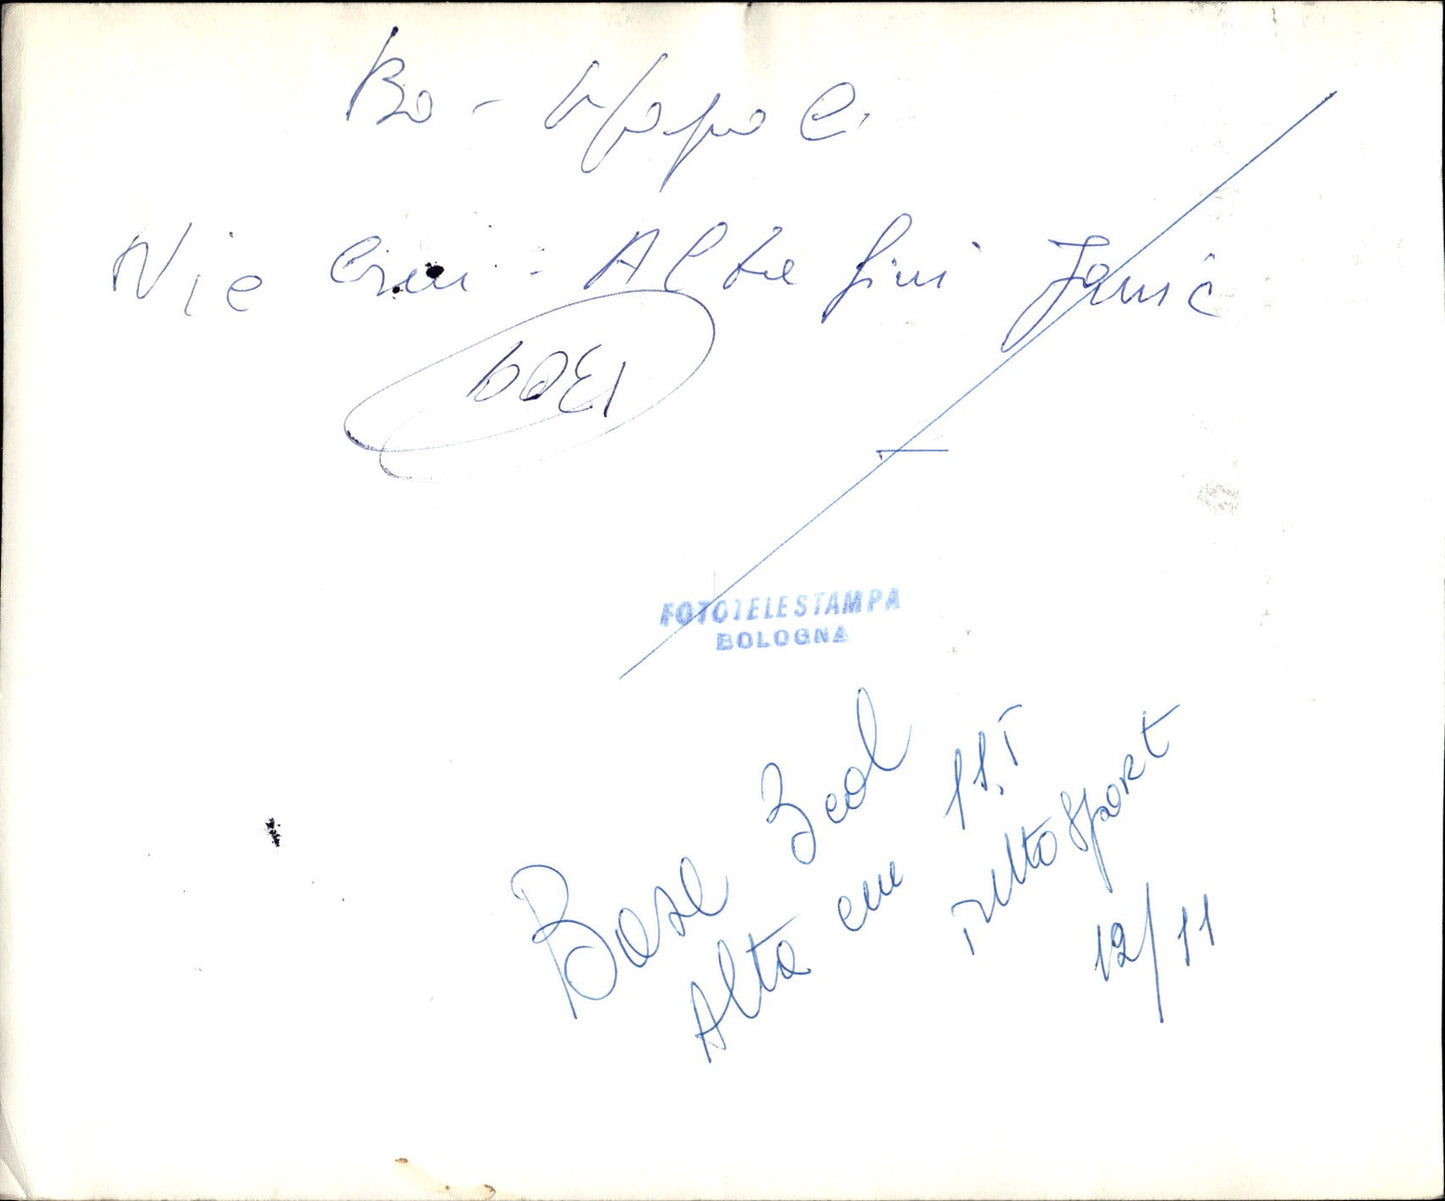 Bo - Napoli
Nicolini - Altafini Janic
1309
FOTOTELESTAMPA
BOLOGNA
Base 3 col
Alta cm 11.5
TuttoSport
12/11